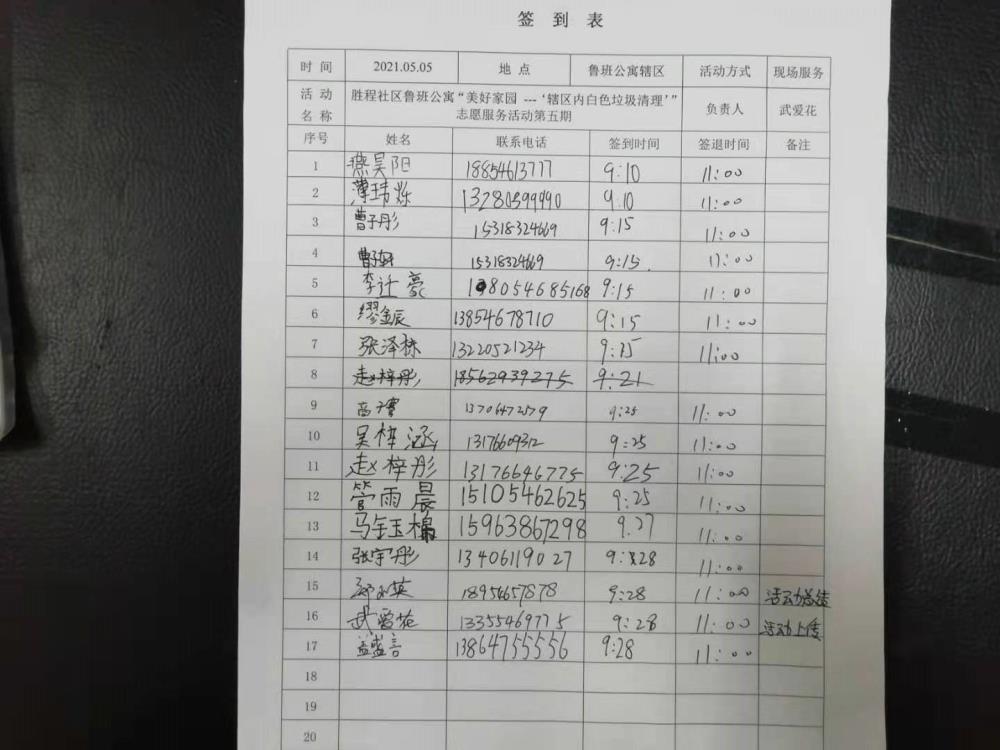 签 到 表
时 间 2021.05.05 地 点 鲁班公寓辖区 活动方式 现场服务
活 动 名 称 胜程社区鲁班公寓“美好家园 ---‘辖区内白色垃圾清理’” 志愿服务活动第五期 负责人 武爱花
序号 姓名 联系电话 签到时间 签退时间 备注
1 燕昊阳 18854613777 9:10 11:00
2 薄玮烁 13280399990 9:10 11:00
3 曹子彤 15318324669 9:15 11:00
4 15318324669 9:15 11:00
5 李让豪 18054685168 9:15 11:00
6 缪金辰 13854678710 9:15 11:00
7 张泽林 13220521234 9:15 11:00
8 赵梓彤 18562939275 9:21
9 13706472579 9:25 11:00
10 吴梓涵 13176609312 9:25 11:00
11 赵梓彤 13176646775 9:25 11:00
12 管雨晨 15105462625 9:25 11:00
13 马金玉 15963867298 9:27 11:00
14 张宇彤 13406119027 9:28 11:00
15 18954657878 9:28 11:00 活动总结
16 武爱花 13355469775 9:28 11:00 活动上传
17 盖盛言 13864755556 9:28 11:00
18
19
20